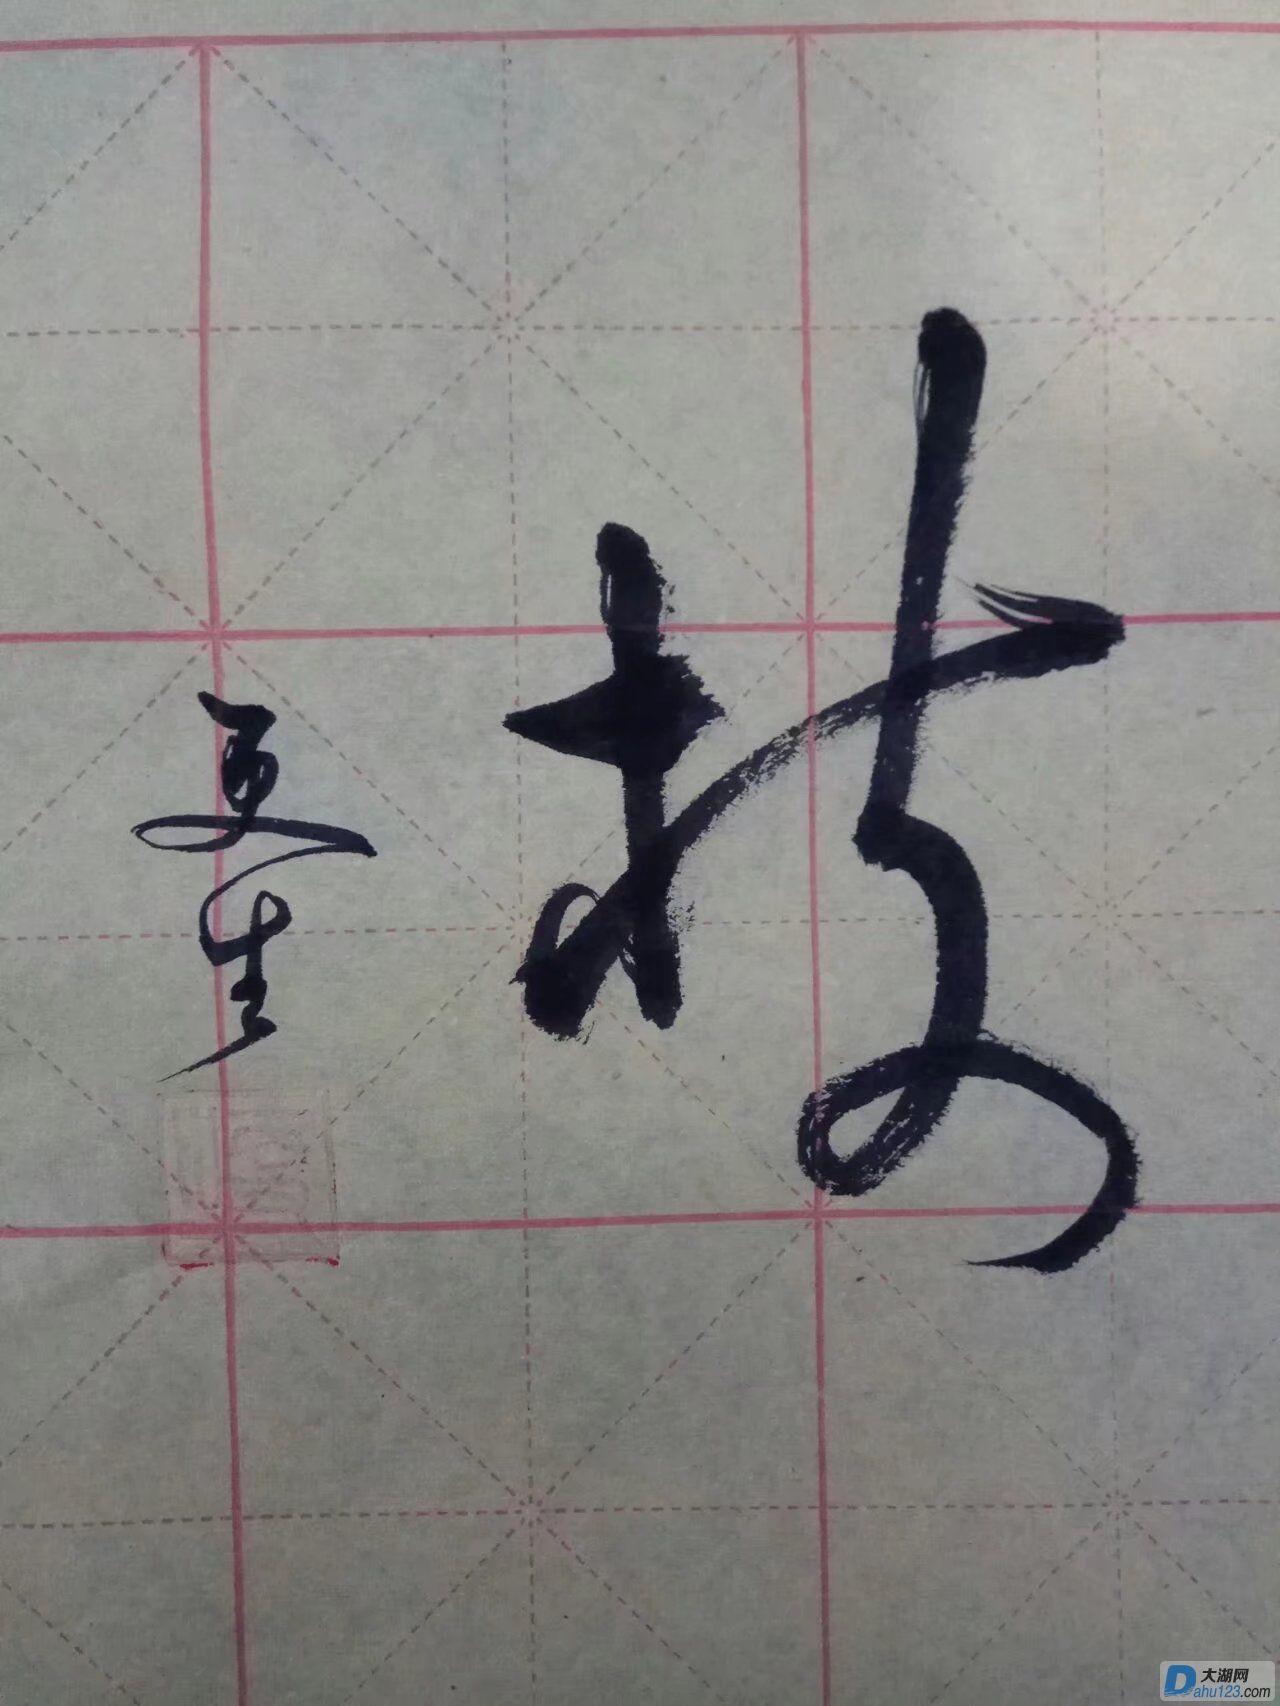 技
更生
大湖网
Dahu123.com